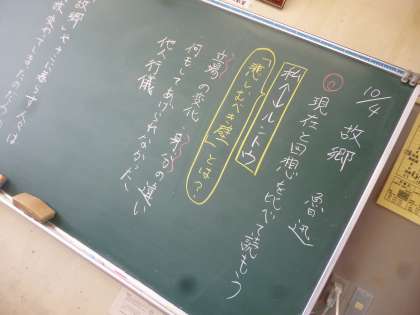 10/4
故郷 魯迅
め 現在と回想を比べて読もう
私↔ルントウ
「悲しむべき壁」とは?
立場の変化・身分の違い
何もしてあげられなかった
他人行儀
故郷